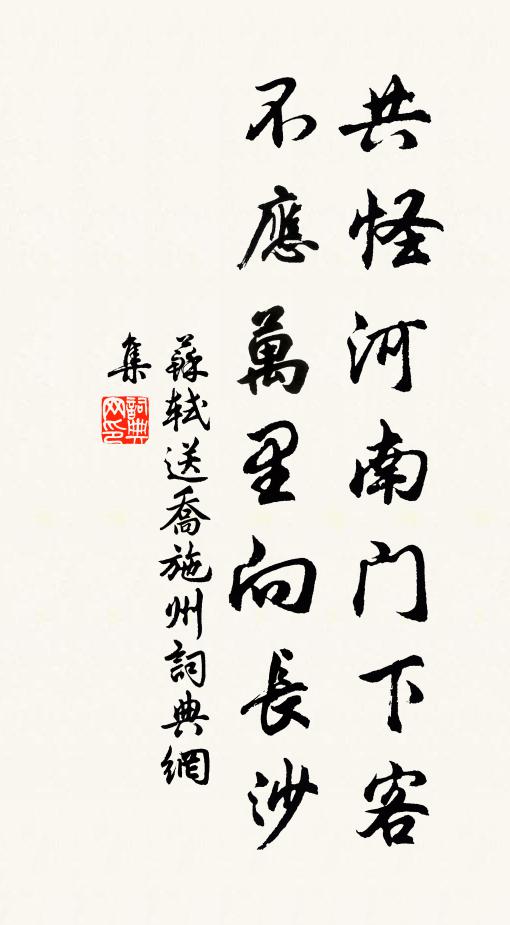 共怪河南门下客
不應萬里向長沙
蘇軾送喬施州詞典網
集
詞典
网印